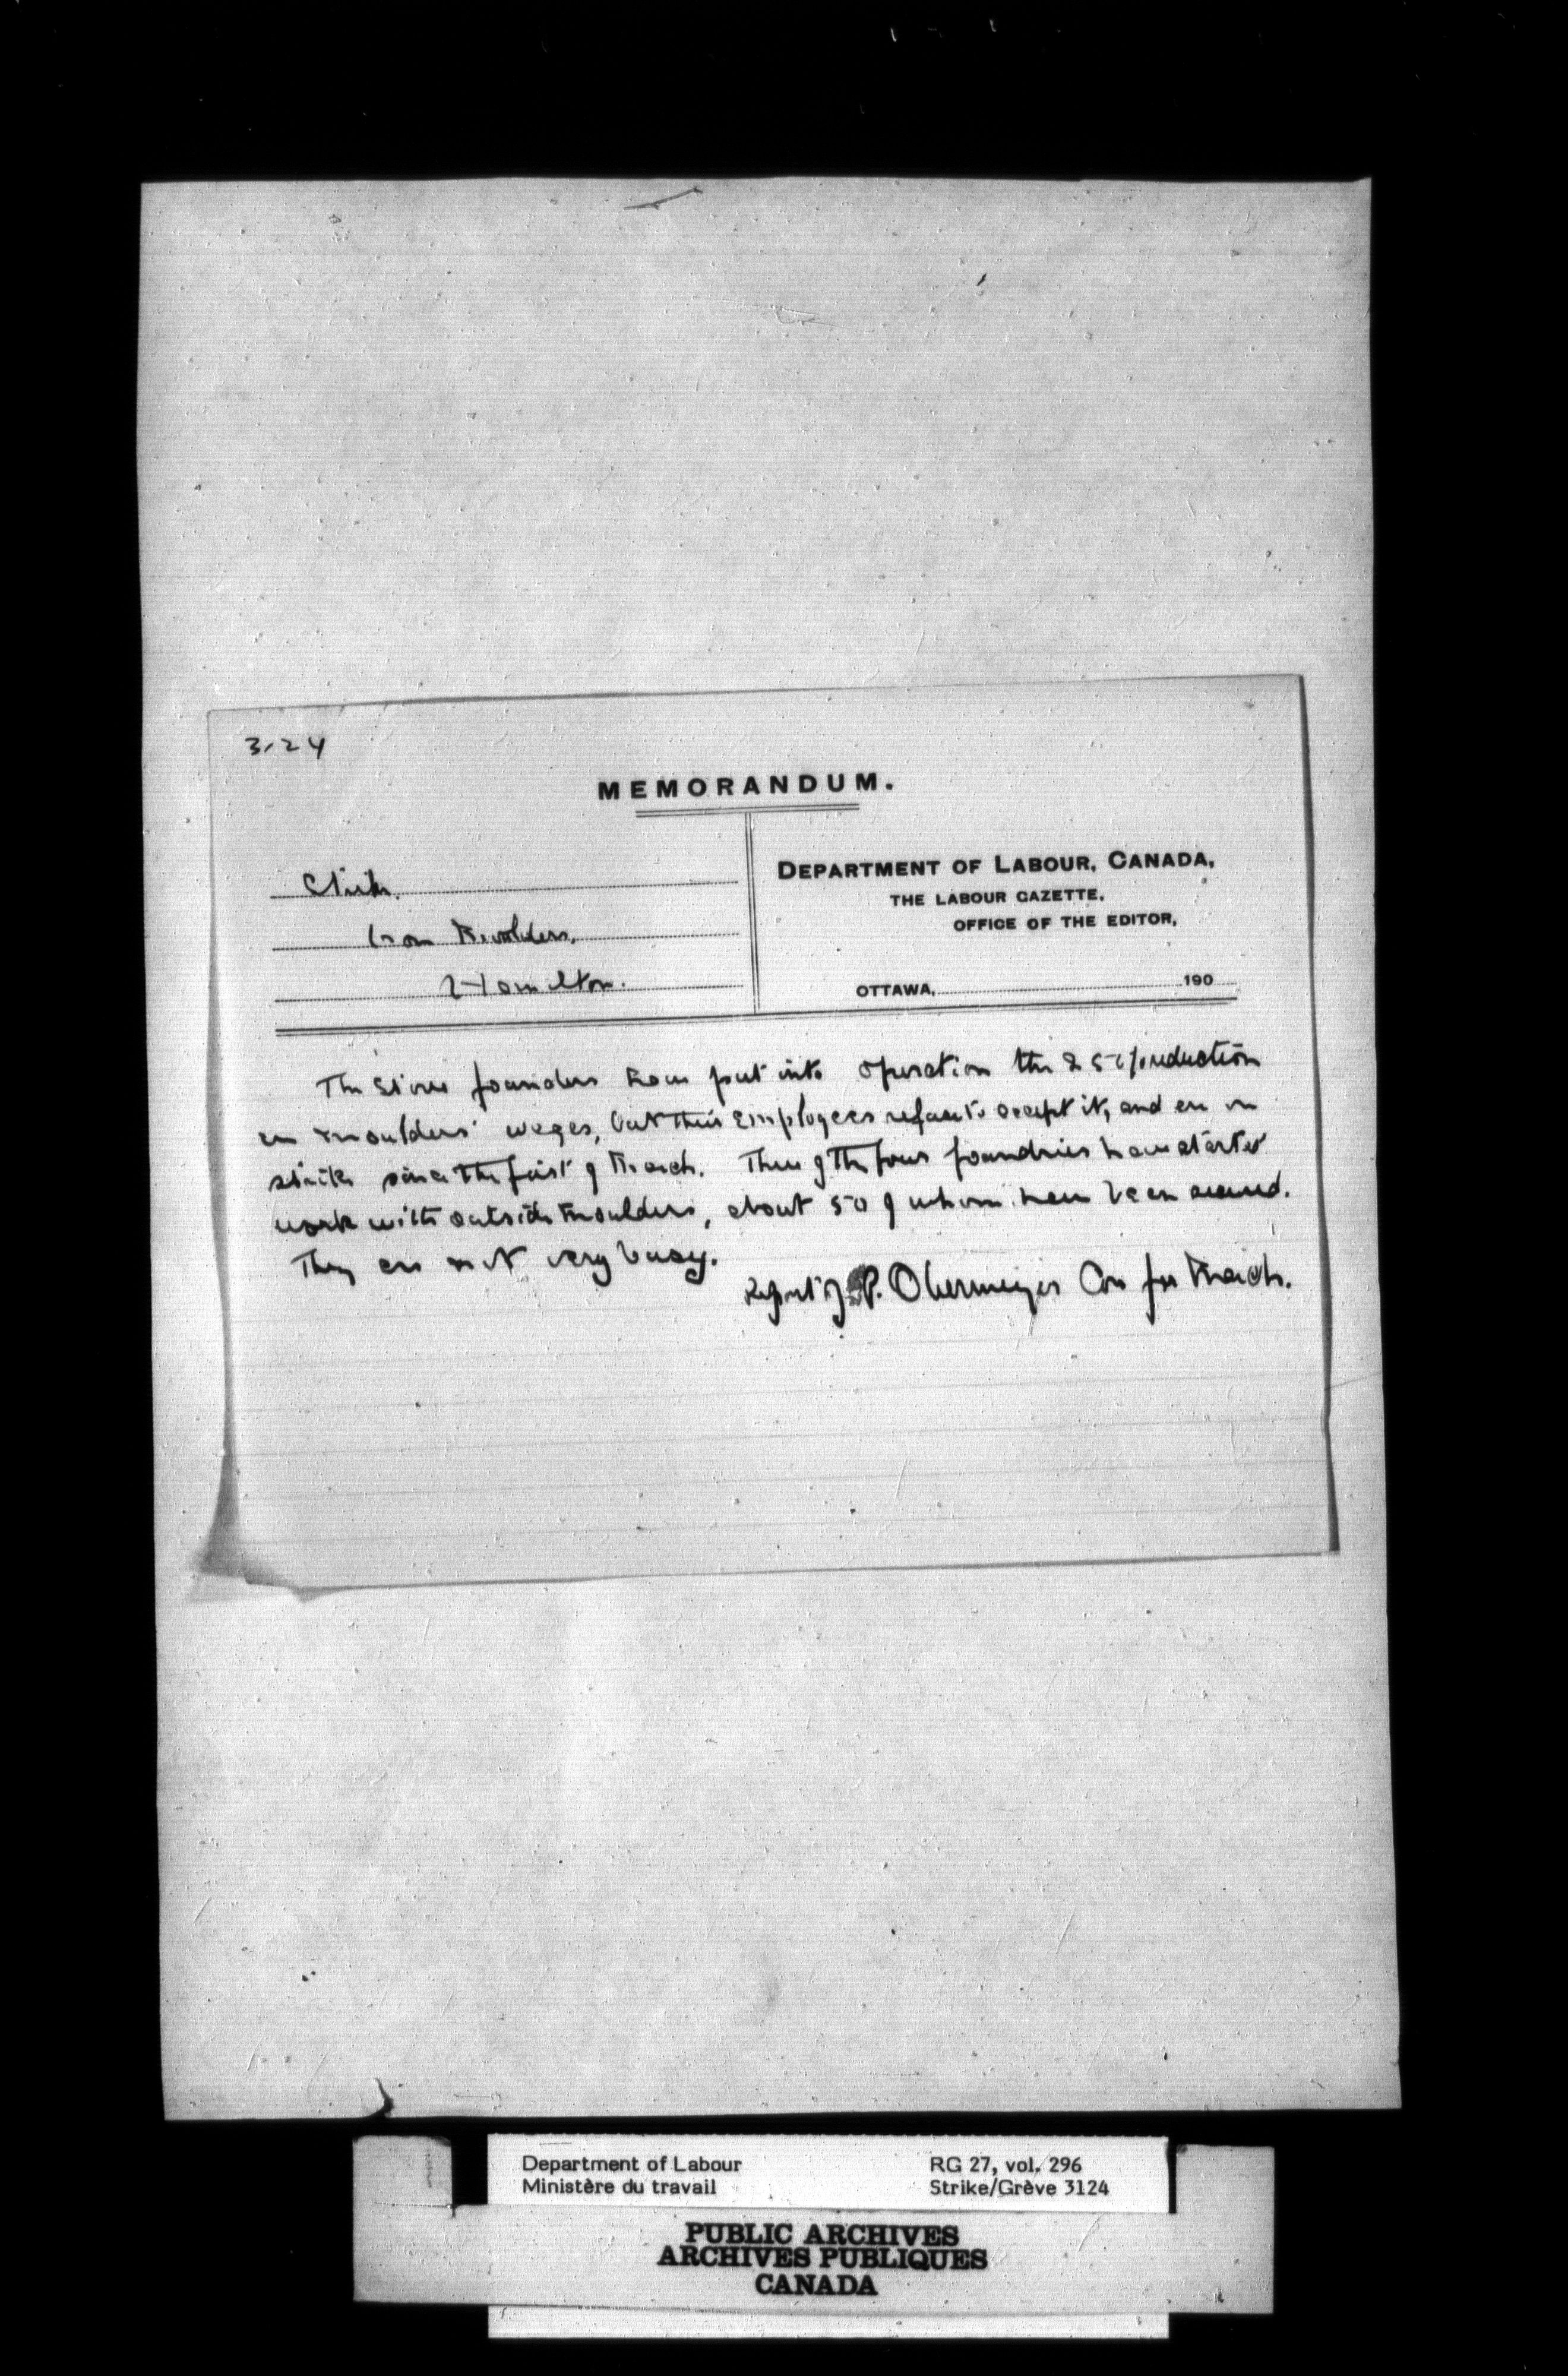 3124
MEMORANDUM.
Strike.
Iron Moulders.
Hamilton.
DEPARTMENT OF LABOUR, CANADA,
THE LABOUR GAZETTE,
OFFICE OF THE EDITOR,
OTTAWA, 190
The stove founders have put into operation the 25% reduction
in moulders' wages, but their employees refuse to accept it, and are on
strike since the first of March. Three of the four foundries have started
work with outside moulders, about 50 of whom have been secured.
They are not very busy.
Report of P. Obermeyer Cor for March.
Department of Labour
Ministère du travail
RG 27, vol. 296
Strike/Grève 3124
PUBLIC ARCHIVES
ARCHIVES PUBLIQUES
CANADA